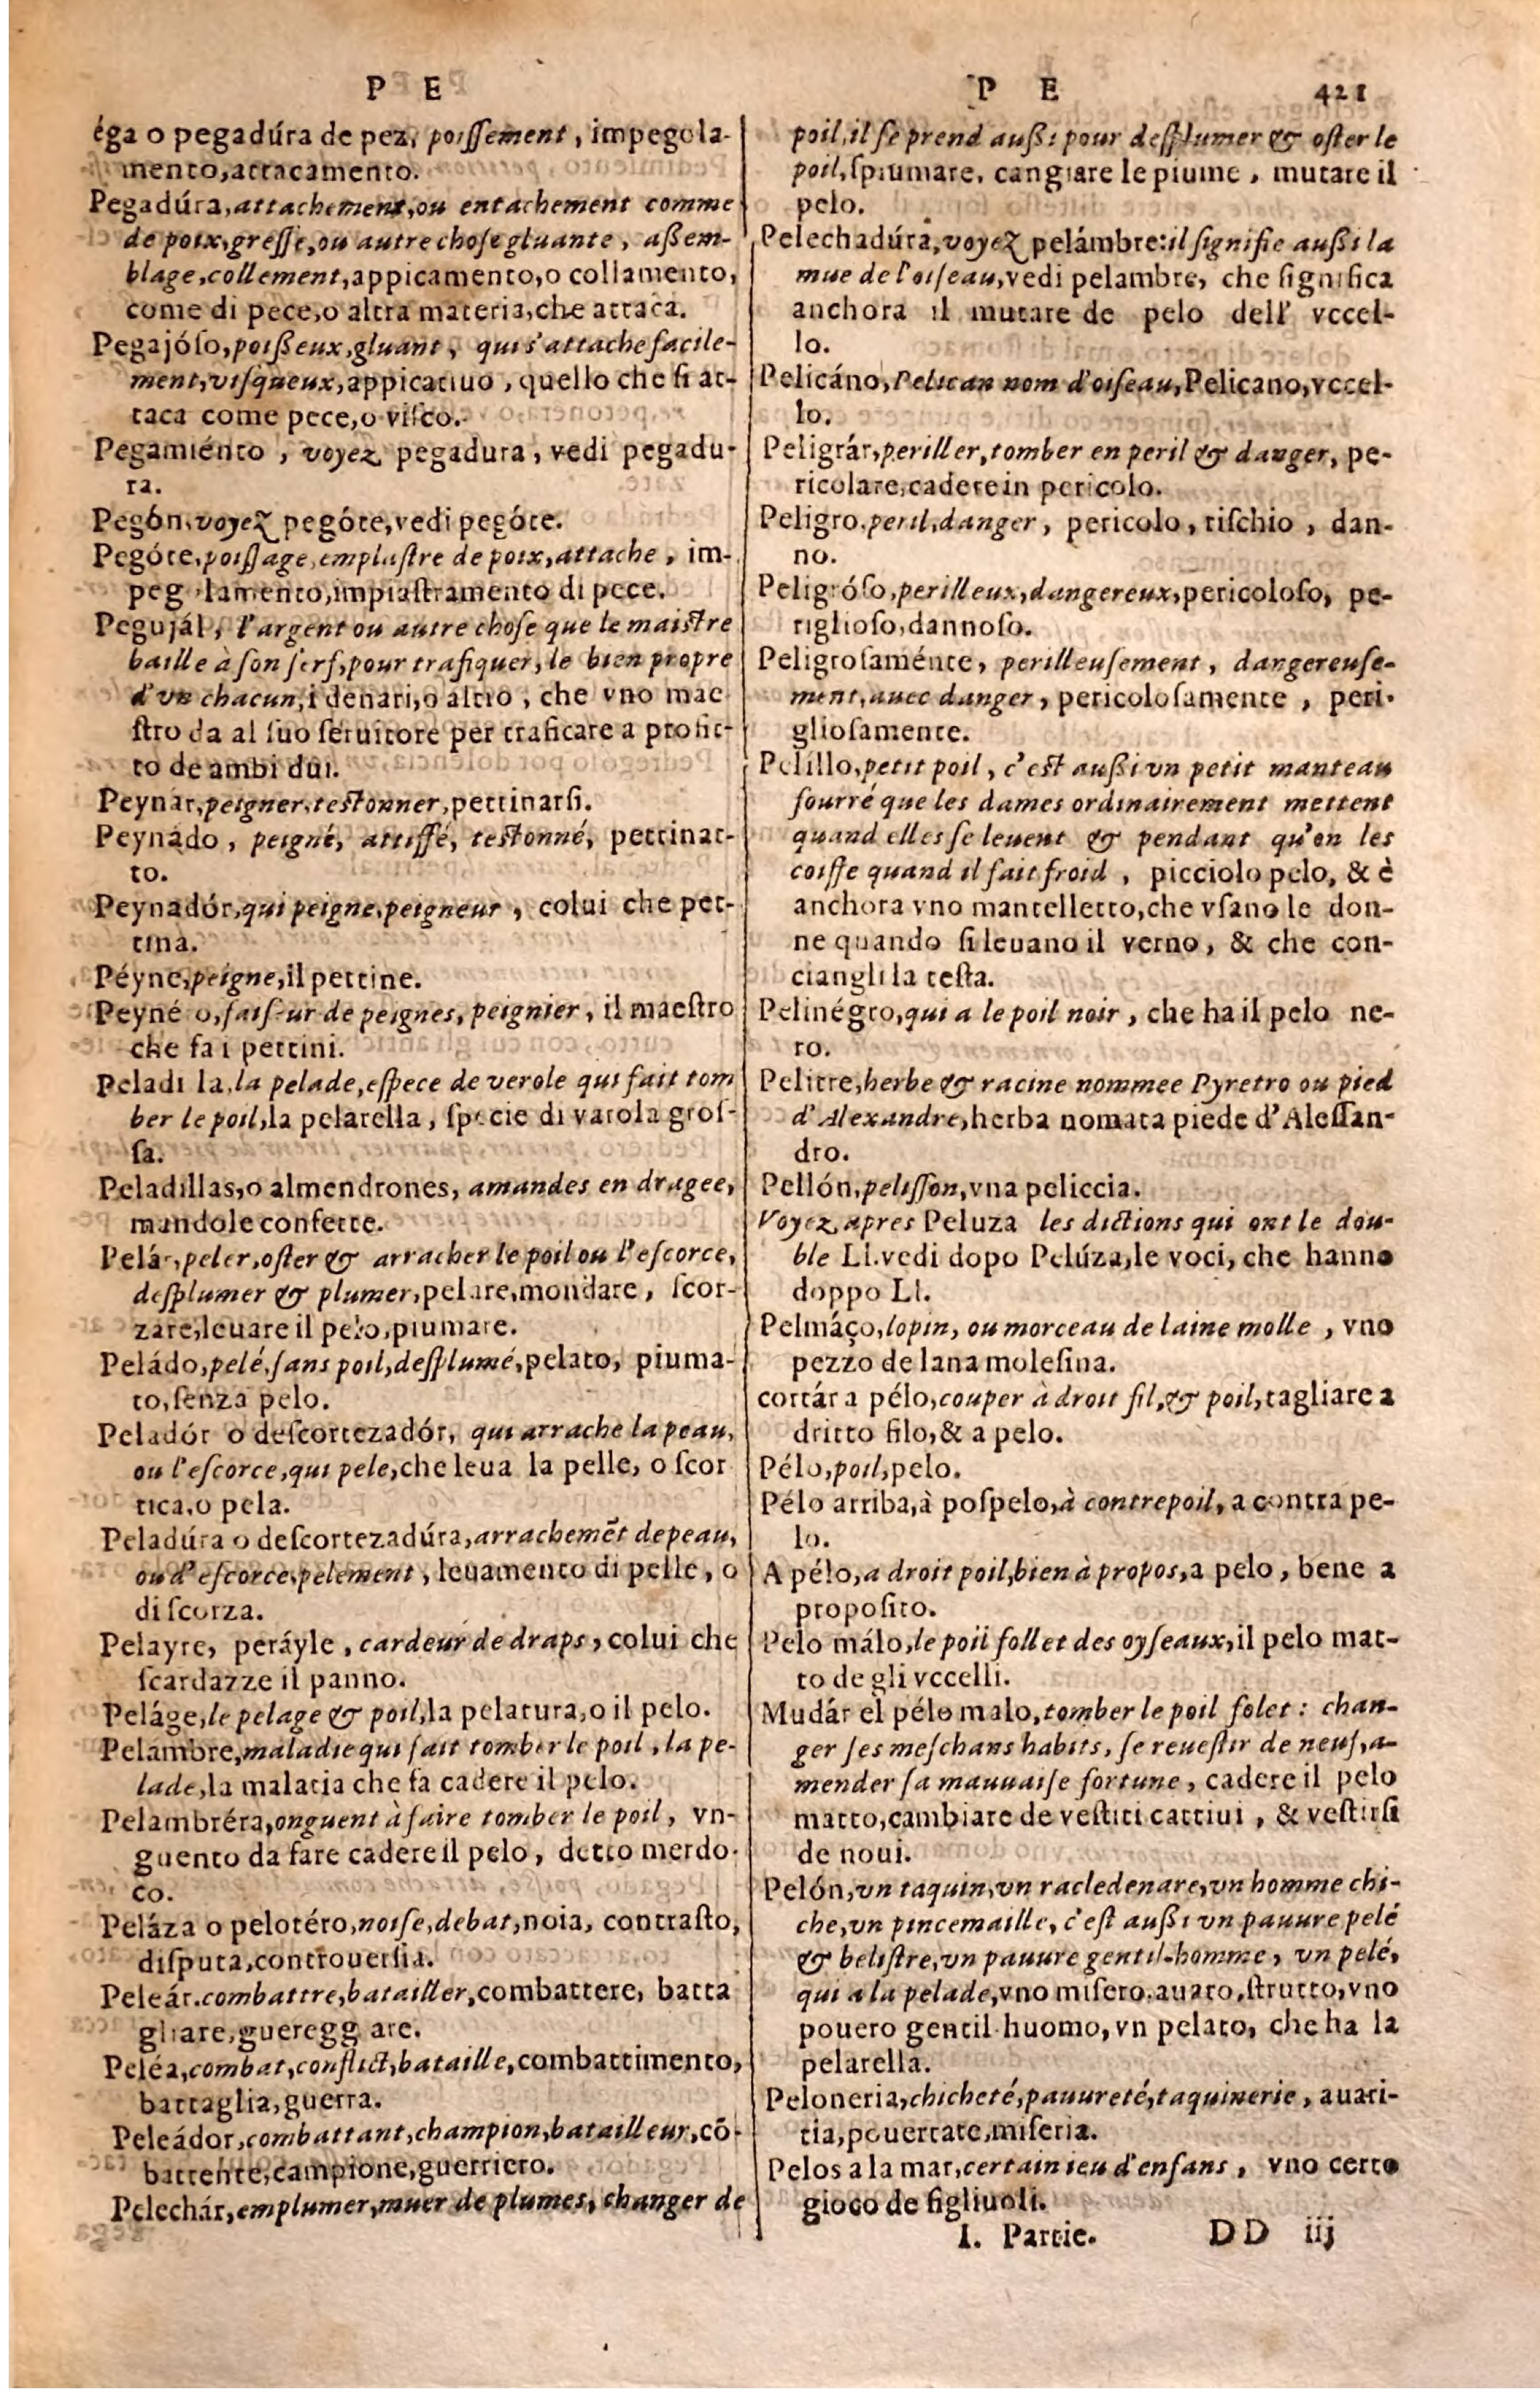 P E
éga o pegadúra de pez, poiſſement, impegola-
mento, attacamento.
Pegadúra, attachement, ou entachement comme
de poix, greſſe, ou autre choſe gluante, aßem-
blage, collement, appicamento, o collamento,
come di pece, o altra materia, che attaca.
Pegajóſo, poißeux, gluant, qui s'attache facile-
ment, viſqueux, appicatiuo, quello che ſi at-
taca come pece, o viſco.
Pegamiénto, voyez pegadura, vedi pegadu-
ra.
Pegón, voyez pegóte, vedi pegóte.
Pegóte, poiſſage, emplaſtre de poix, attache, im-
peg lamento, impiaſtramento di pece.
Pegujál, l'argent ou autre choſe que le maiſtre
baille à ſon ſerf, pour trafiquer, le bien propre
d'vn chacun, i denari, o altro, che vno mae
ſtro da al ſuo ſeruitore per traficare a profit-
to de ambi dui.
Peynár, peigner, teſtonner, pettinarſi.
Peynádo, peigné, attiffé, teſtonné, pettinat-
to.
Peynadór, qui peigne, peigneur, colui che pet-
tina.
Péyne, peigne, il pettine.
Peyné o, faiſeur de peignes, peignier, il maeſtro
che fa i pettini.
Peladi la, la pelade, eſpece de verole qui fait tom
ber le poil, la pelarella, ſpecie di varola groſ-
ſa.
Peladillas, o almendrones, amandes en dragee,
mandole confette.
Pelár, peler, oſter & arracher le poil ou l'eſcorce,
deſplumer & plumer, pelare, mondare, ſcor-
zare, leuare il pelo, piumare.
Peládo, pelé, ſans poil, deſplumé, pelato, piuma-
to, ſenza pelo.
Peladór o deſcortezadór, qui arrache la peau,
ou l'eſcorce, qui pele, che leua la pelle, o ſcor
tica, o pela.
Peladúra o deſcortezadúra, arrachemēt de peau,
ou d'eſcorce, pelement, leuamento di pelle, o
di ſcorza.
Pelayre, peráyle, cardeur de draps, colui che
ſcardazze il panno.
Peláge, le pelage & poil, la pelatura, o il pelo.
Pelambre, maladie qui fait tomber le poil, la pe-
lade, la malatia che fa cadere il pelo.
Pelambréra, onguent à faire tomber le poil, vn-
guento da fare cadere il pelo, detto merdo-
co.
Peláza o pelotéro, noiſe, debat, noia, contraſto,
diſputa, controuerſia.
Peleár, combattre, batailler, combattere, batta
gliare, gueregg are.
Peléa, combat, conflict, bataille, combattimento,
battaglia, guerra.
Peleádor, combattant, champion, batailleur, cō-
battente, campione, guerriero.
Pelechár, emplumer, muer de plumes, changer de
P E 421
poil, il ſe prend außi pour deſplumer & oſter le
poil, ſpiumare, cangiare le piume, mutare il
pelo.
Pelechadúra, voyez pelámbre: il ſignifie außi la
mue de l'oiſeau, vedi pelambre, che ſignifica
anchora il mutare de pelo dell' vccel-
lo.
Pelicáno, Pelican nom d'oiſeau, Pelicano, vccel-
lo.
Peligrár, periller, tomber en peril & danger, pe-
ricolare, cadere in pericolo.
Peligro, peril, danger, pericolo, riſchio, dan-
no.
Peligróſo, perilleux, dangereux, pericoloſo, pe-
riglioſo, dannoſo.
Peligroſaménte, perilleuſement, dangereuſe-
ment, auec danger, pericoloſamente, peri-
glioſamente.
Pelíllo, petit poil, c'eſt außi vn petit manteau
fourré que les dames ordinairement mettent
quand elles ſe leuent & pendant qu'on les
coiffe quand il fait froid, picciolo pelo, & è
anchora vno mantelletto, che vſano le don-
ne quando ſi leuano il verno, & che con-
ciangli la teſta.
Pelinégro, qui a le poil noir, che ha il pelo ne-
ro.
Pelitre, herbe & racine nommee Pyretro ou pied
d'Alexandre, herba nomata piede d'Aleſſan-
dro.
Pellón, peliſſon, vna peliccia.
Voyez apres Peluza les dictions qui ont le dou-
ble Ll. vedi dopo Pelúza, le voci, che hanno
doppo Ll.
Pelmáço, lopin, ou morceau de laine molle, vno
pezzo de lana moleſina.
cortár a pélo, couper à droit fil, & poil, tagliare a
dritto filo, & a pelo.
Pélo, poil, pelo.
Pélo arriba, à poſpelo, à contrepoil, a contra pe-
lo.
A pélo, a droit poil, bien à propos, a pelo, bene a
propoſito.
Pelo málo, le poil follet des oyſeaux, il pelo mat-
to de gli vccelli.
Mudár el pélo malo, tomber le poil folet: chan-
ger ſes meſchans habits, ſe reueſtir de neuf, a-
mender ſa mauuaiſe fortune, cadere il pelo
matto, cambiare de veſtiti cattiui, & veſtirſi
de noui.
Pelón, vn taquin, vn racledenare, vn homme chi-
che, vn pincemaille, c'eſt außi vn pauure pelé
& beliſtre, vn pauure gentil-homme, vn pelé,
qui a la pelade, vno miſero, auaro, ſtrutto, vno
pouero gentil huomo, vn pelato, che ha la
pelarella.
Peloneria, chicheté, pauureté, taquinerie, auari-
tia, pouertate, miſeria.
Pelos a la mar, certain ieu d'enfans, vno certo
gioco de figliuoli.
I. Partie. DD iij